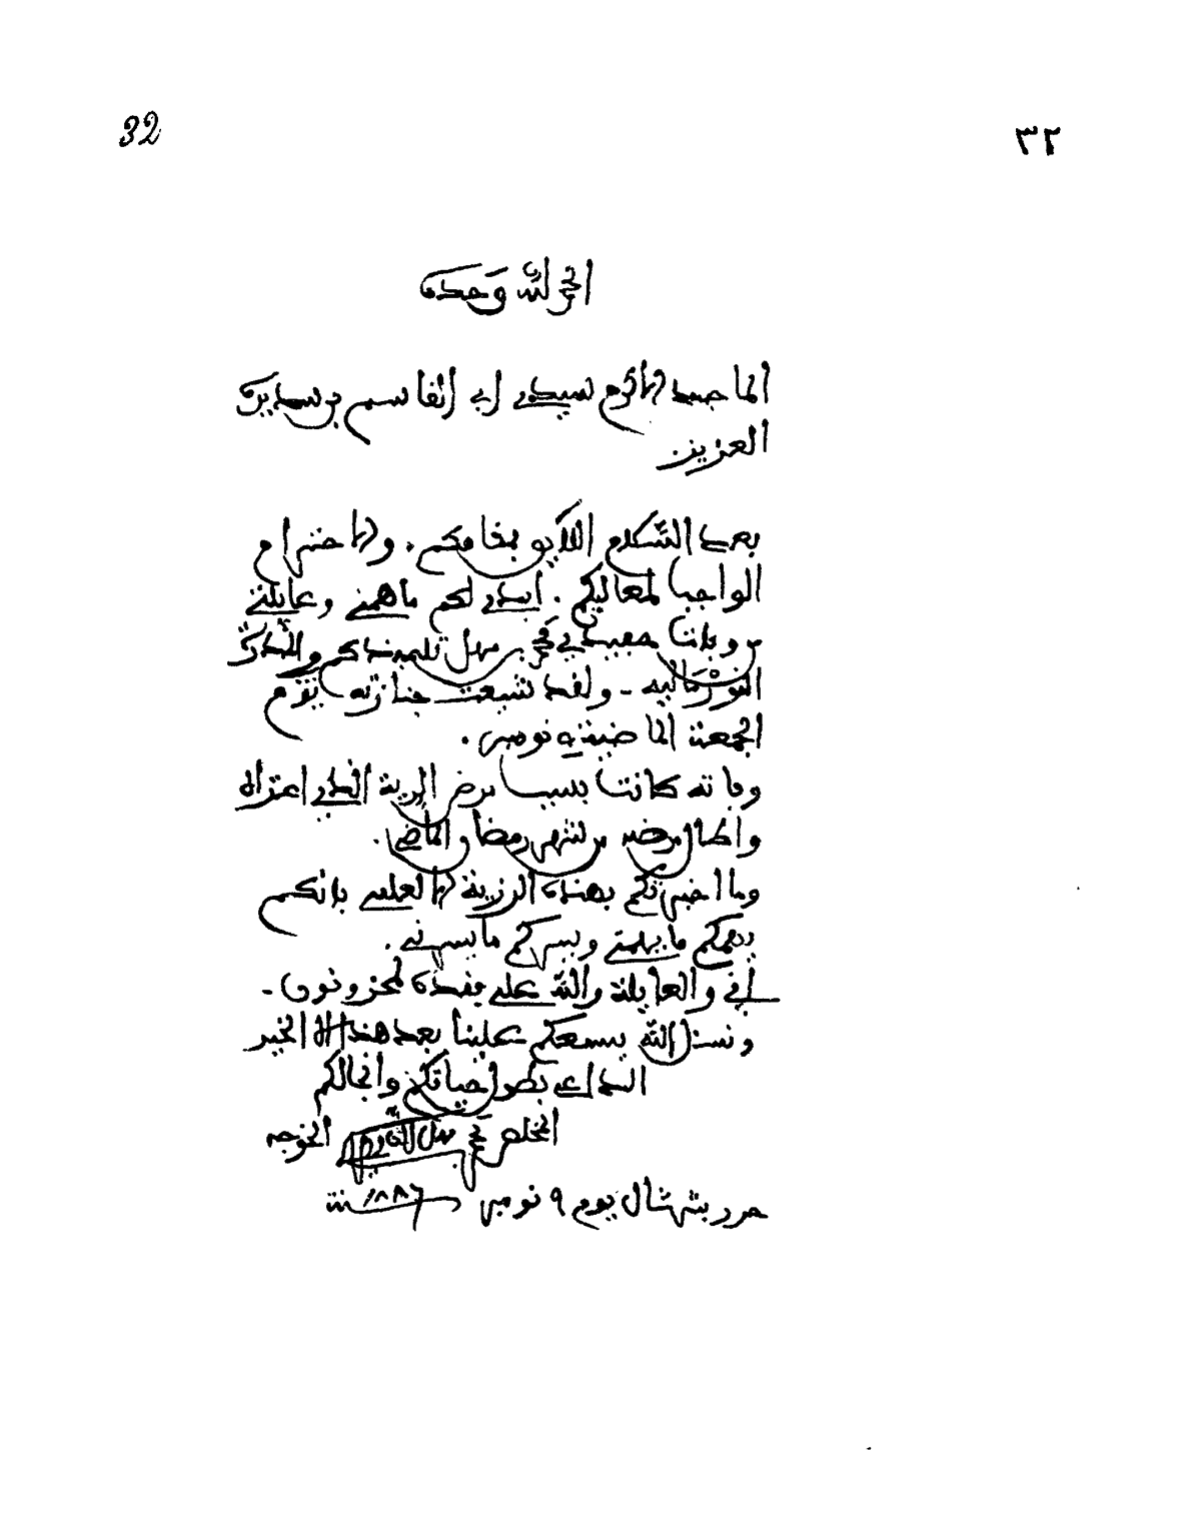 32
٣٢
الحمد لله وحده
الماجد الاكرم سيدي ابي القاسم بن سديرة
العزيز
بعد السلام اللايق بمقامكم. والاحترام
الواجب لمعاليكم. ابدي لكم ما همني وعايلتي
من وفات حفيدي محمد بن سهل تلميذكم
النورماليه - ولقد شيعت جنازته يوم
الجمعة الماضية نومبر.
وفاته كانت بسبب مرض الرية الذي اعتراه
واطال مرضه من شهر رمضان الماضي.
وما اخبرتكم بهذه الرزية الا لعلمي بانكم
يهمكم ما يهمني ويسركم ما يسرني.
اني والعايلة والله على فقده لمحزونون -
ونسئل الله يسمعكم علينا بعد هذا الا الخير
الداعي بطول حياتكم وانجالكم
المخلص محمد الخوجه
حرر بشرشال يوم ٩ نومبر سنة ١٨٨٦